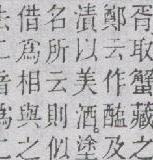 胥取蟹藏之
鄭云作醢及
漬以美酒塗
名所云則似
借為相與之